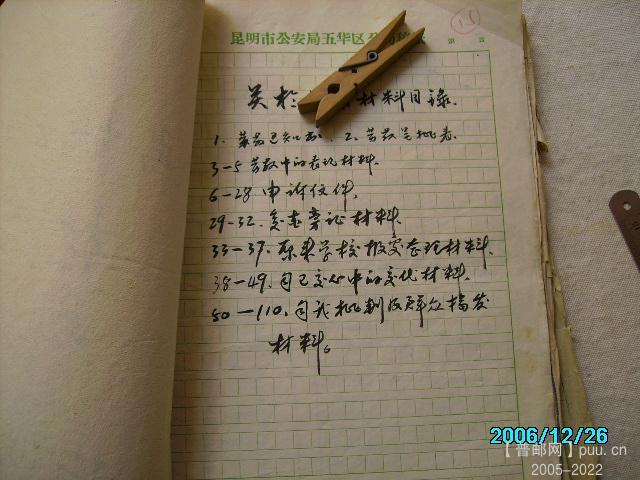 昆明市公安局五华区分局
第 页
关于 材料目录.
1. 劳教 2. 劳教呈批表.
3—5 劳教中的表现材料.
6—28. 申诉信件.
29—32. 复查旁证材料.
33—37. 原来学校报卖 材料.
38—49. 自己交心中的交代材料.
50—110. 自我批判及群众揭发
材料。
2006/12/26
【普邮网】puu.cn
2005-2022